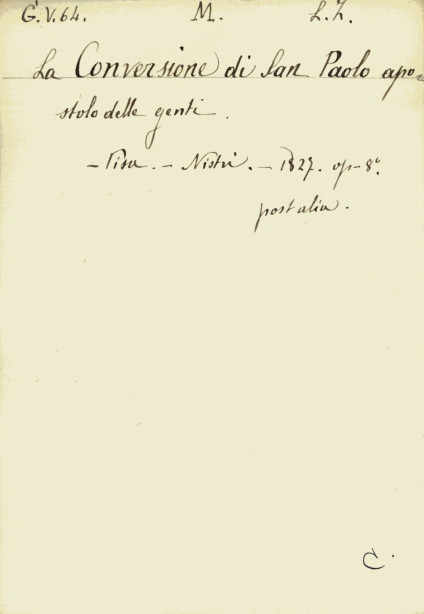 G.V.64. M. L.Z.
La Conversione di San Paolo apo=
stolo delle genti.
– Pisa. – Nistri. – 1827. op–8°.
post alia.
C.